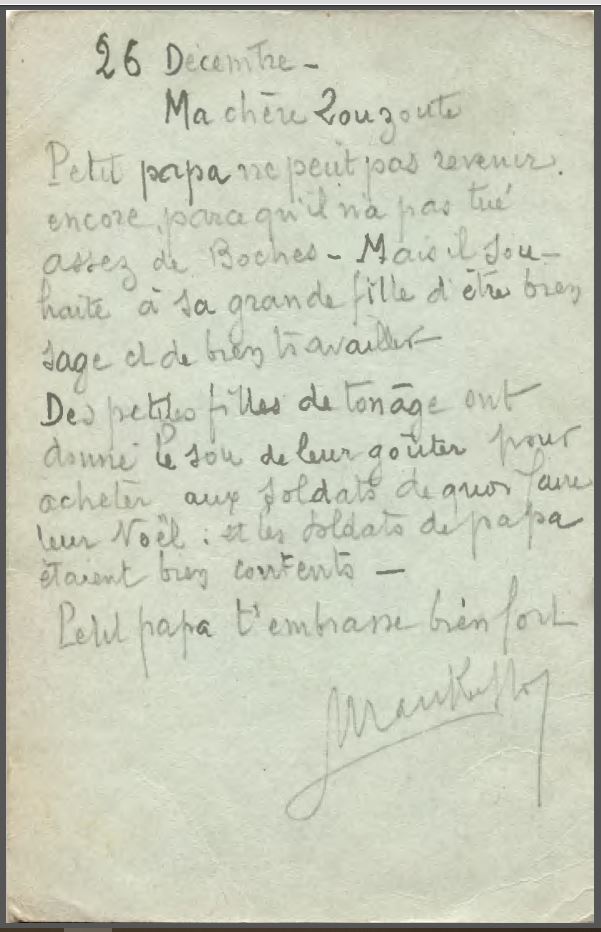 26 Décembre -
Ma chère Zouzoute
Petit papa ne peut pas revenir
encore, parcequ'il n'a pas tué
assez de Boches - Mais il sou-
haite à sa grande fille d'être bien
sage et de bien travailler
Des petites filles de ton âge ont
donné le sou de leur goûter pour
acheter aux soldats de quoi faire
leur Noël : et les soldats de papa
étaient bien contents -
Petit papa t'embrasse bien fort